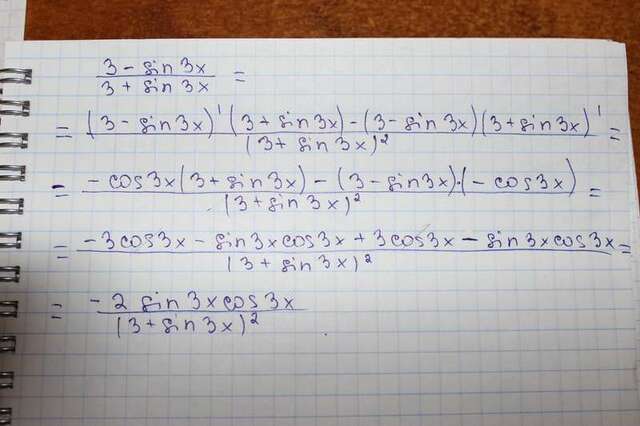 (3 - sin 3x)/(3 + sin 3x) =
= ((3 - sin 3x)' (3 + sin 3x) - (3 - sin 3x)(3 + sin 3x)')/(3 + sin 3x)² =
= (- cos 3x (3 + sin 3x) - (3 - sin 3x)·(- cos 3x))/(3 + sin 3x)² =
= (- 3 cos 3x - sin 3x cos 3x + 3 cos 3x - sin 3x cos 3x)/(3 + sin 3x)² =
= (- 2 sin 3x cos 3x)/(3 + sin 3x)²